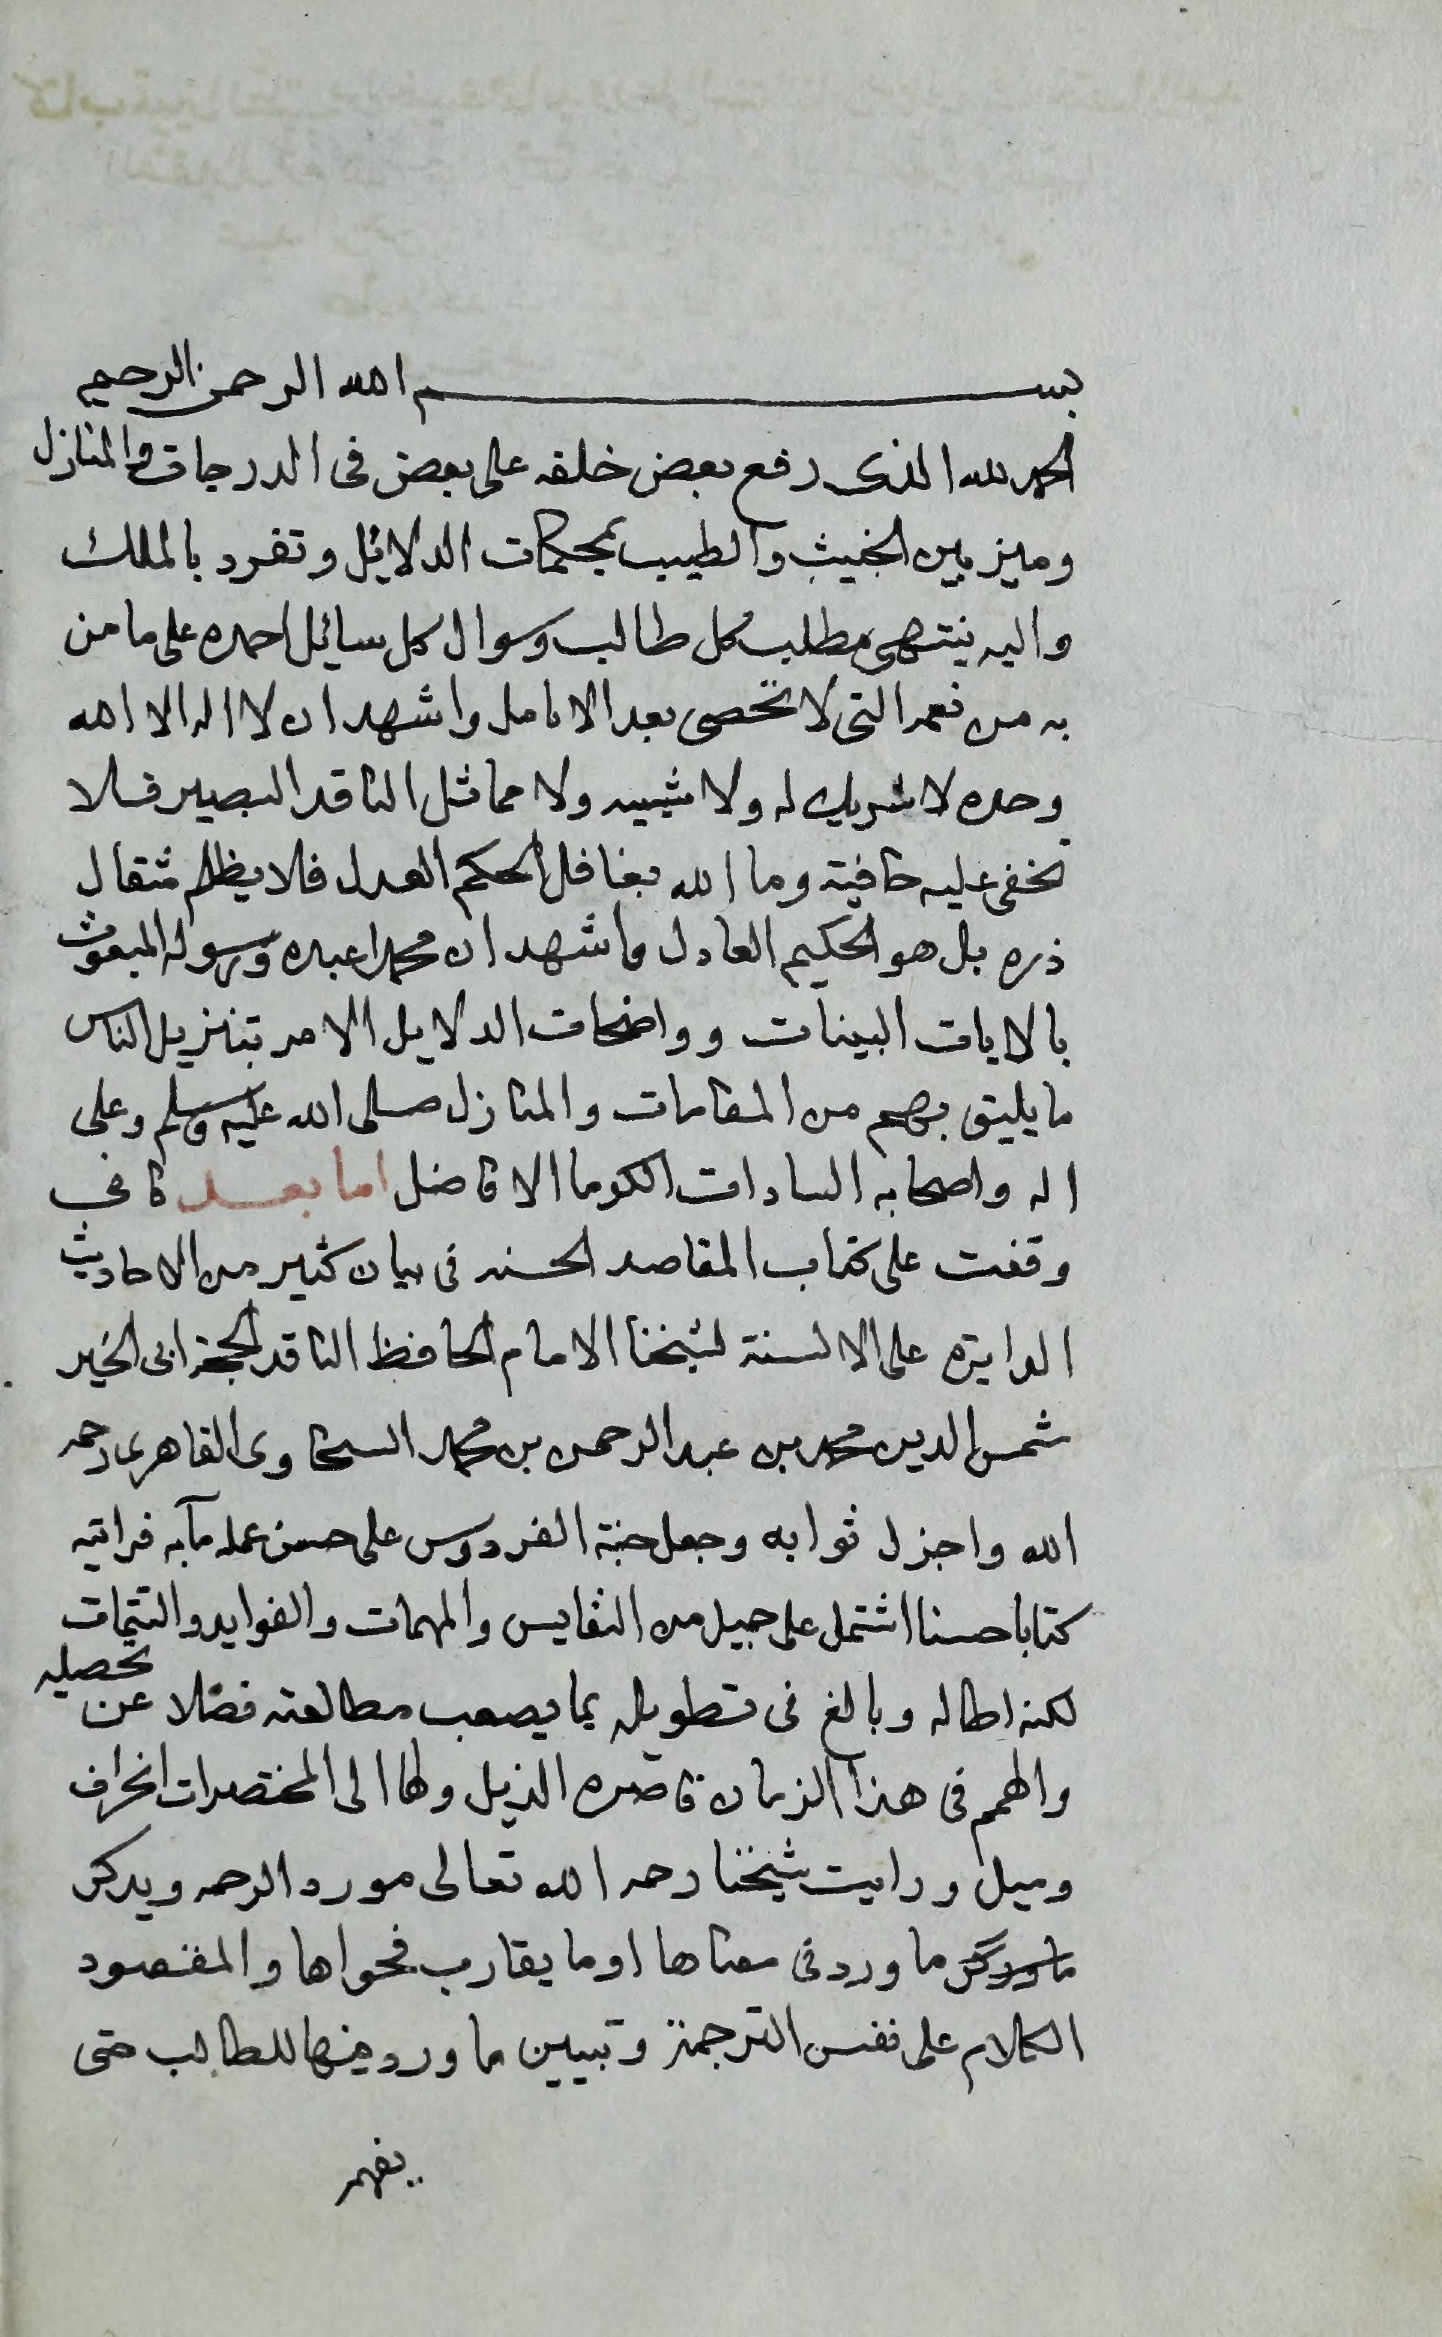 بسم الله الرحمن الرحيم
الحمد لله الذى رفع بعض خلقه على بعض فى الدرجات والمنازل
وميز بين الخبيث والطيب بمحكمات الدلائل وتفرد بالملك
واليه ينتهى مطلب كل طالب وسوال كل سائل احمده على ما من
به من نعمه التى لا تحصى بعد الانامل واشهد ان لا اله الا الله
وحده لا شريك له ولا شبيه ولا مماثل الناقد البصير فلا
تخفى عليه خافية وما الله بغافل الحكم العدل فلا يظلم مثقال
ذره بل هو الحكيم العادل واشهد ان محمدا عبده ورسوله المبعوث
بالايات البينات وواضحات الدلايل الامر بتنزيل الناس
ما يليق بهم من المقامات والمنازل صلى الله عليه وسلم وعلى
اله واصحابه السادات الكرما الافاضل اما بعد فانى
وقفت على كتاب المقاصد الحسنه فى بيان كثير من الاحاديث
الدايره على الالسنة لشيخنا الامام الحافظ الناقد الحجة ابى الخير
شمس الدين محمد بن عبد الرحمن بن محمد السخاوى القاهرى رحمه
الله واجزل ثوابه وجعل جنة الفردوس على حسن عمله مآبه فرايته
كتابا حسنا اشتمل على جميل من النفايس والمهمات والفوايد والتتمات
لكنه اطاله وبالغ فى تطويله بما يصعب مطالعته فضلا عن تحصيله
والهمم فى هذا الزمان قاصره الذيل ولها الى المختصرات انحراف
وميل ورايت شيخنا رحمه الله تعالى مورد الرحمه ويدكر
ما ورد فى معناها او ما يقارب فحواها والمقصود
الكلام على نفس الترجمة وتبيين ما ورد منها للطالب حتى
يفهم